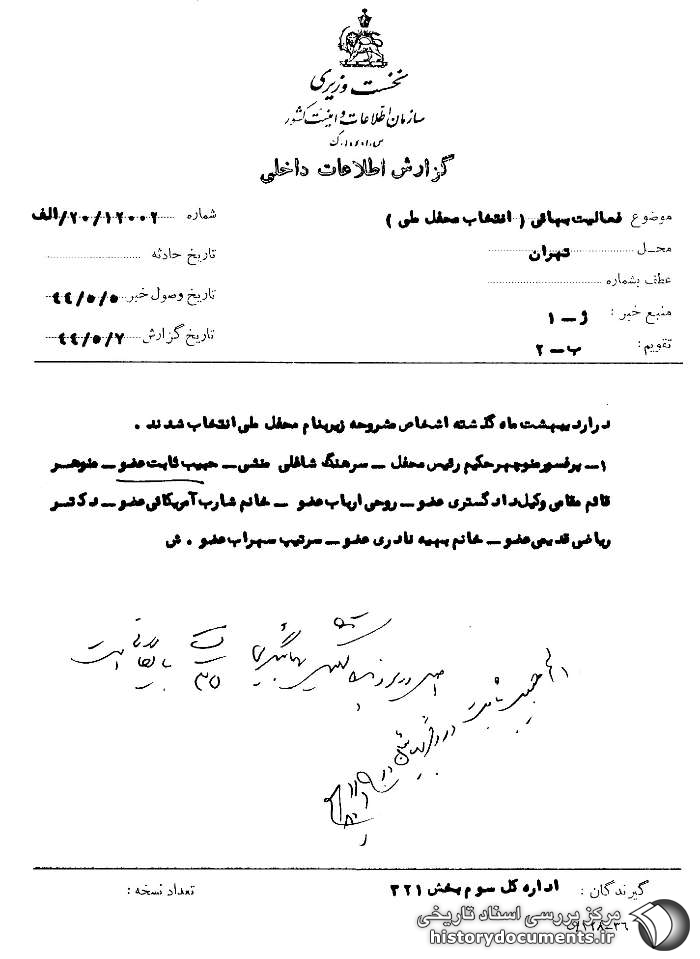 نخست وزیری
سازمان اطلاعات و امنیت کشور
س.ا.و.ا.ک
گزارش اطلاعات داخلی
موضوع فعالیت بهائی ( انتخاب محفل ملی )
شماره ۲۰/۱۲۰۰۲/الف
محل تهران
تاریخ حادثه
عطف بشماره
تاریخ وصول خبر ۴۴/۵/۵
منبع خبر : ژ – ۱
تاریخ گزارش ۴۴/۵/۷
تقویم : ب – ۲
در اردیبهشت ماه گذشته اشخاص مشروحه زیر بنام محفل ملی انتخاب شدند .
۱– پرفسور منوچهر حکیم رئیس محفل – سرهنگ شاقلی منشی – حبیب ثابت عضو – منوهر
قائم مقامی وکیل دادگستری عضو – روحی ارباب عضو – خانم شارب آمریکائی عضو – دکتر
ریاضی قدیمی عضو – خانم بهیه نادری عضو – سرتیپ سهراب عضو . ش
اصل در پرونده
بایگانی است
حبیب ثابت در
گیرندگان : اداره کل سوم بخش ۳۲۱
تعداد نسخه :
مرکز بررسی اسناد تاریخی
historydocuments.ir